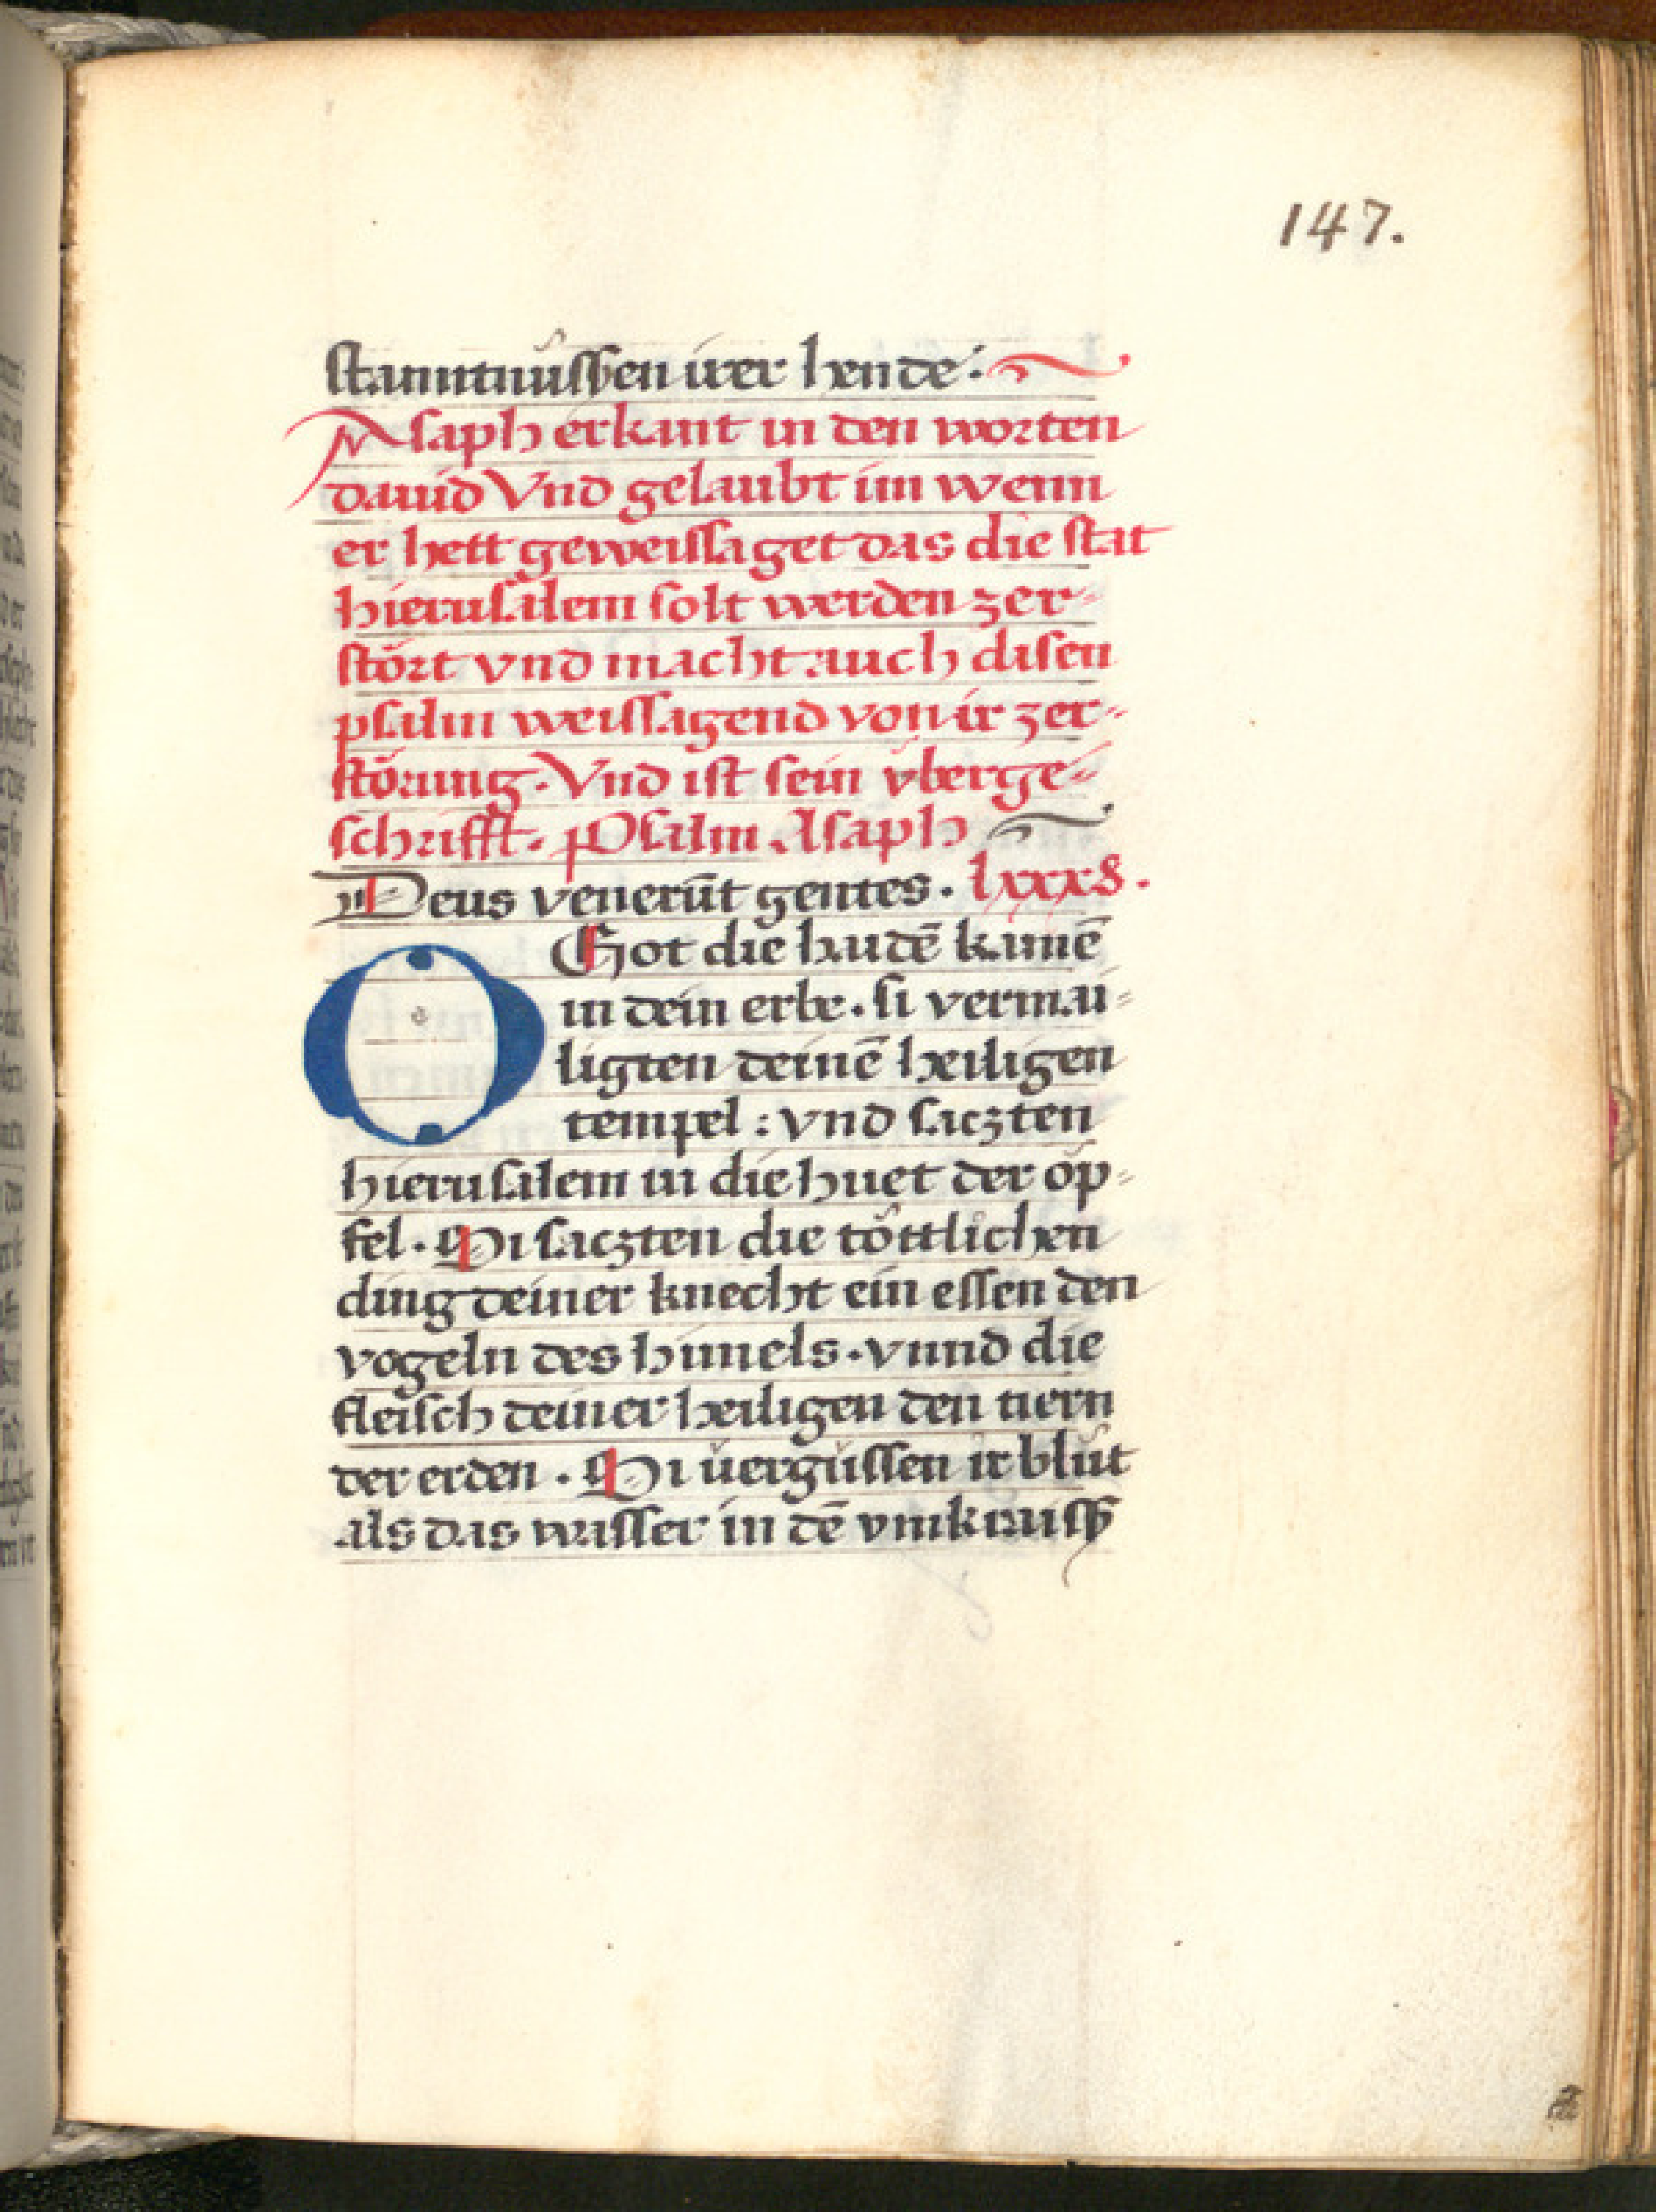 147.
stanntnüssen irer hende :
Asaph erkant in den worten
dauid Vnd gelaubt im wenn
er hett geweissaget das die stat
hierusalem solt werden zer-
stört vnd macht auch disen
psalm weissagend von ir zer-
störung. Vnd ist sein überge-
schrifft. Psalm Asaph
Deus venerūt gentes. lxxx8.
O Got die haidē kamē
in dein erbe. si vermai-
ligten deinē heiligen
tempel : vnd saczten
hierusalem in die huet der öp-
fel. Si saczten die töttlichen
ding deiner knecht ein essen den
vogeln des himels. vnnd die
fleisch deiner heiligen den tiern
der erden. Si üergüssen ir blůt
als das wasser in dē vmkraiß